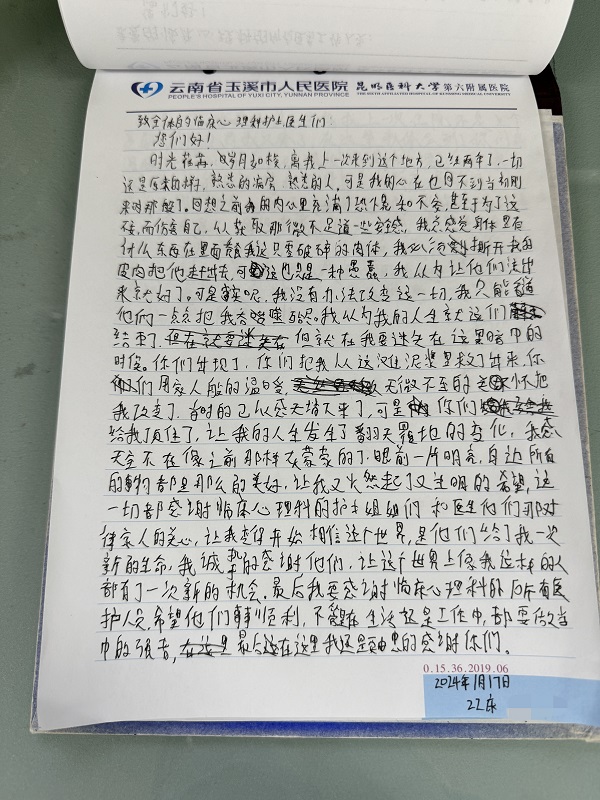 云南省玉溪市人民医院 昆明医科大学第六附属医院
PEOPLE'S HOSPITAL OF YUXI CITY, YUNNAN PROVINCE
致全体的临床心理科护士医生们:
您们好!
时光荏苒,岁月如梭,离我上一次来到这个地方,已经两年了,一切
还是原来的样,熟悉的病房,熟悉的人,可是我的心在也回不到当初刚
来时那般了。回想之前我的内心里充满了恐惧和不安,甚至于为了这
不安,而伤害自己,从获取那微不足道一些安全感,我总感觉身体里有
什么东西在里面啃食我这只零破碎的肉体,我必须撕开我的
皮肉把他赶出去,可这也只是一种愚蠢,我以为让他们流出
来就好了。可事实呢,我没有办法改变这一切,我只能看着
他们一点点把我吞噬,我以为我的人生就这们
结束了,但就在我要迷失在这黑暗中的
时候。你们出现了,你们把我从这泥浆里救了出来,你
们用家人般的温暖,无微不至的关怀把
我改变了,有时的已以感天塌下来了,可是你们
给我顶住了,让我的人生发生了翻天覆地的变化,我感
天空不在像之前那样灰蒙蒙的了,眼前一片明亮,身边所有
的事物都是那么的美好,让我又燃起了对生明的希望,这
一切都感谢临床心理科的护士姐姐们和医生他们那对
待家人的关心,让我重新开始相信这个世界,是他们给了我一次
新的生命,我诚挚的感谢他们,让这个世界上像我这样的人
都有了一次新的机会,最后我要感谢临床心理科的所有医
护人员,希望他们事事顺利,不管在生活还是工作中,都要做当
中的强者,最后在这里我还是由衷的感谢你们。
0.15.36.2019.06
2024年1月17日
22床